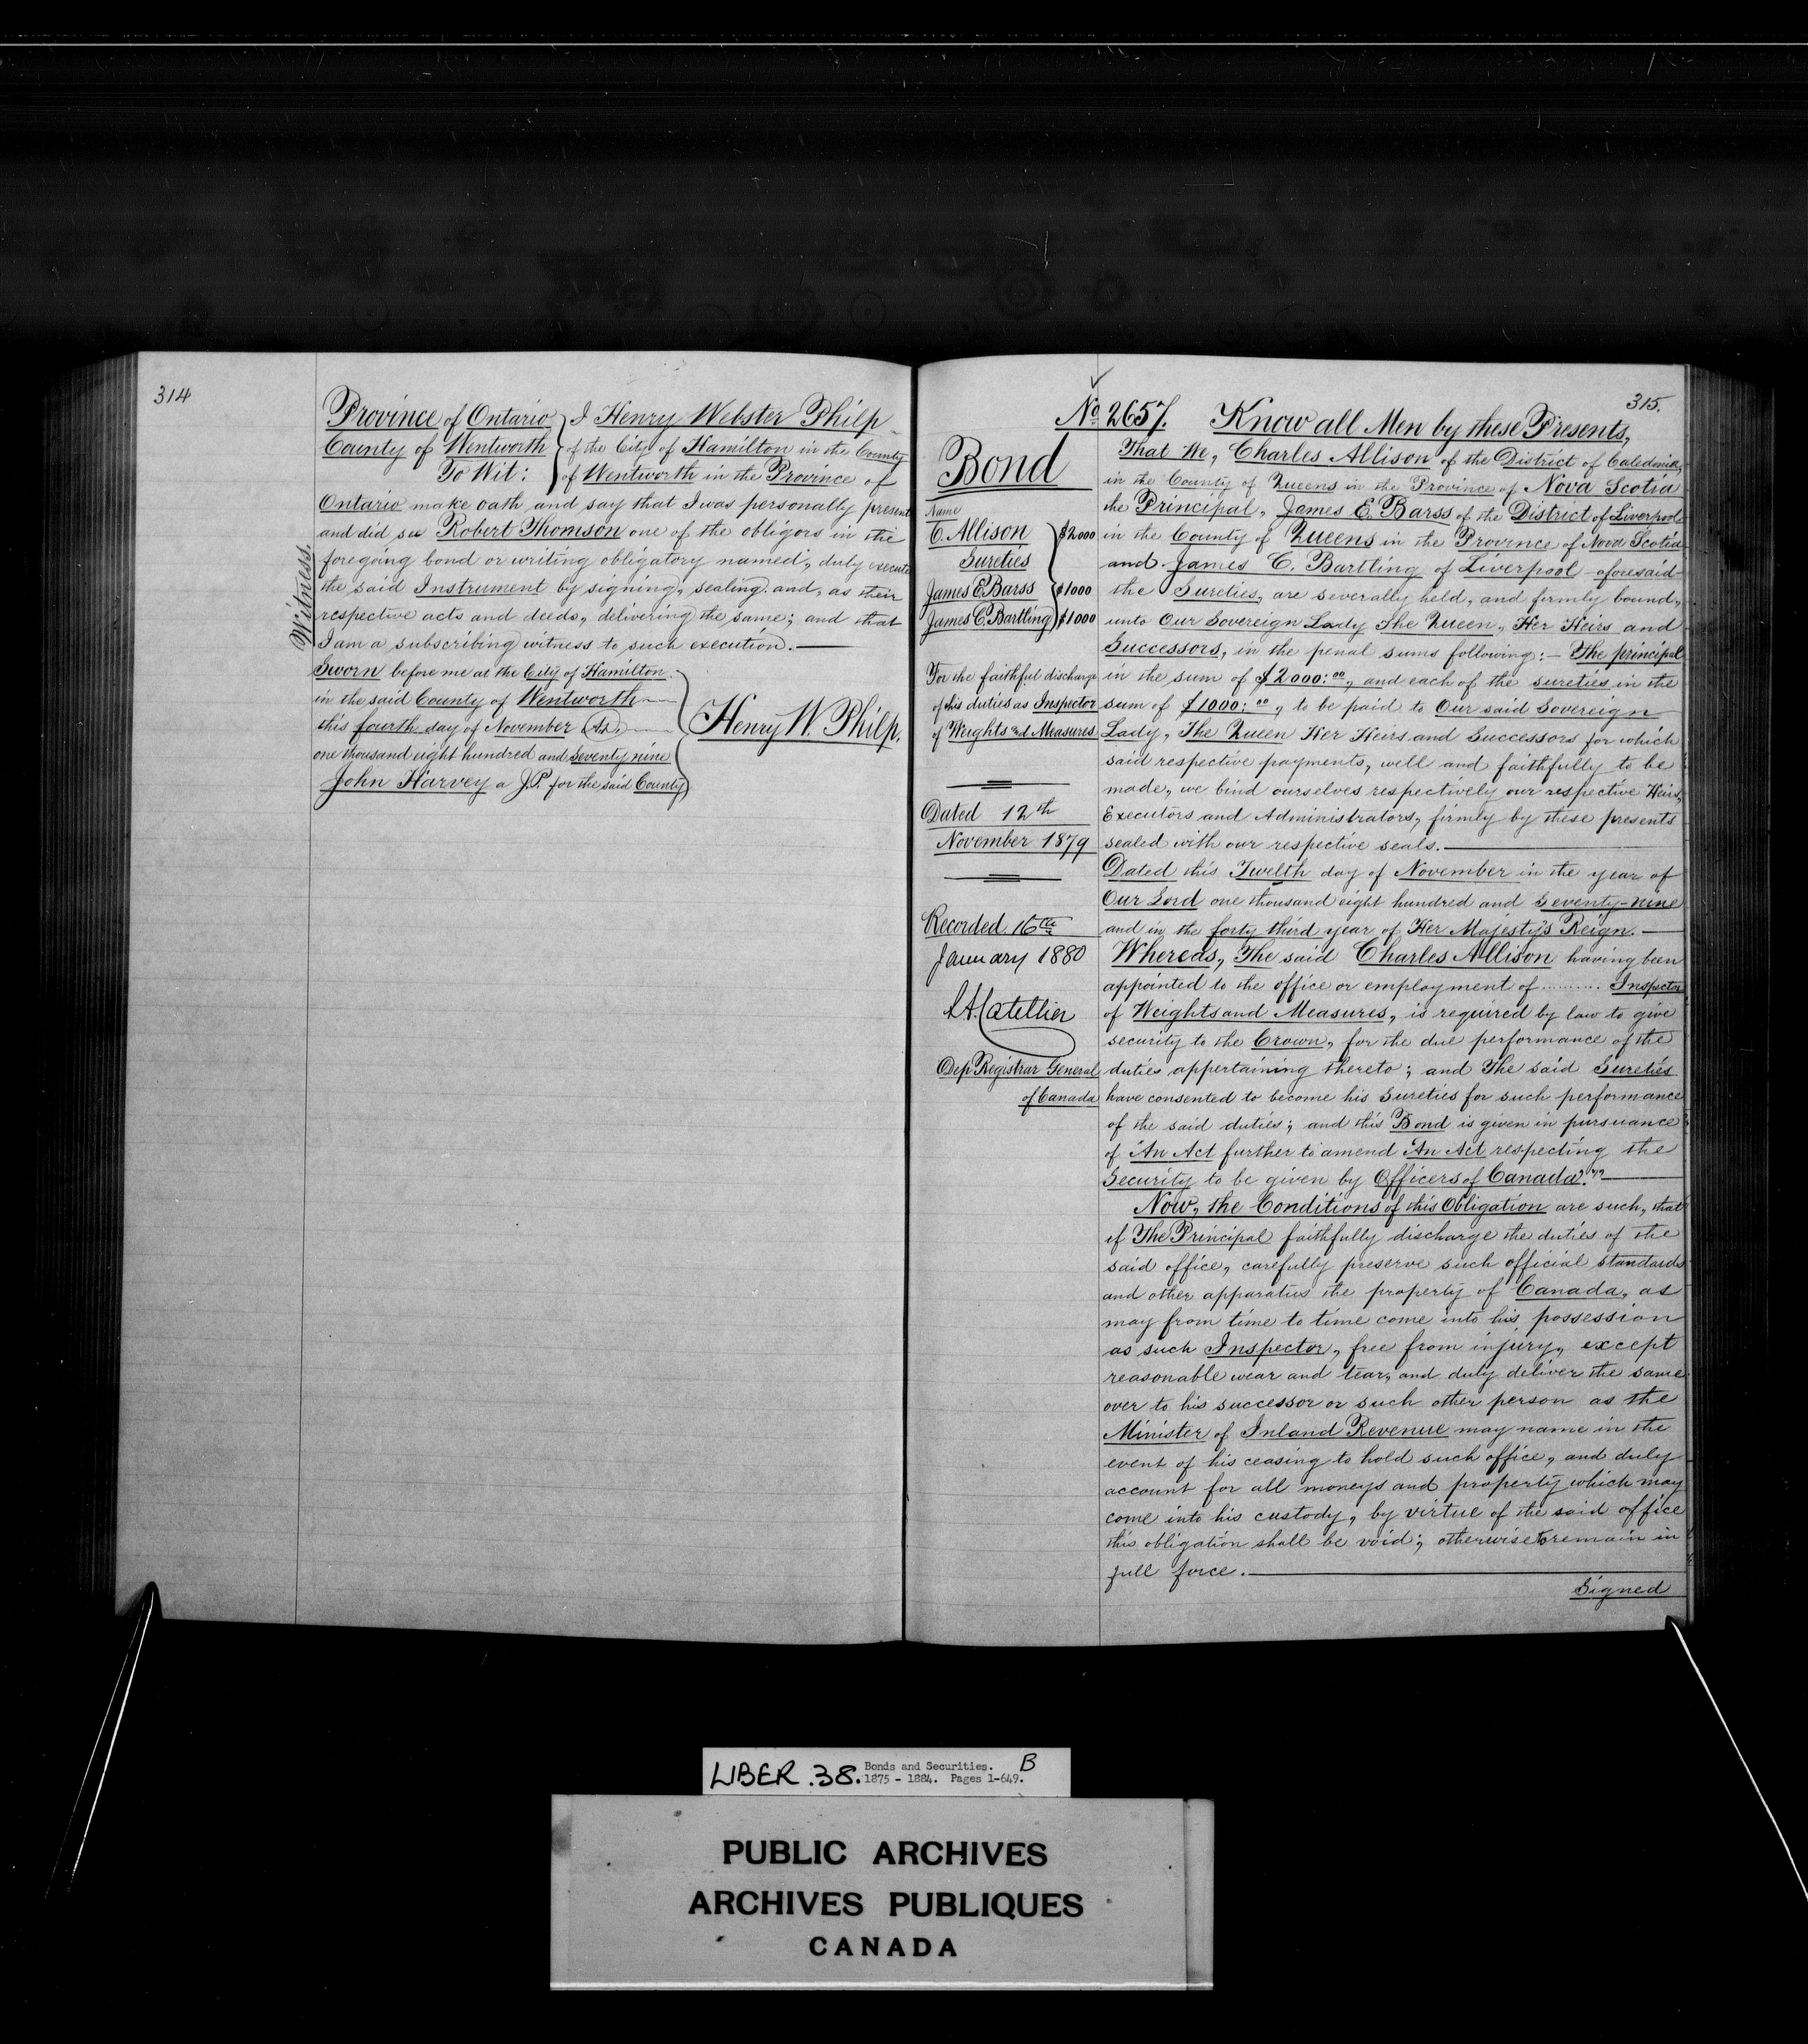 314
Province of Ontario } I Henry Webster Philp
County of Wentworth } of the City of Hamilton in the County
To Wit: } of Wentworth in the Province of
Ontario make oath and say that I was personally present
and did see Robert Thomson one of the obligors in the
foregoing bond or writing obligatory named, duly execute
the said Instrument by signing, sealing and, as their
respective acts and deeds, delivering the same; and that
I am a subscribing witness to such execution.
Witness
Sworn before me at the City of Hamilton
in the said County of Wentworth
this fourth day of November
one thousand eight hundred and Seventy nine
John Harvey a J.P. for the said County
Henry W. Philp.
315.
No 2657. Know all Men by these Presents,
Bond
Name
C. Allison } $2000
Sureties
James E. Barss } $1000
James C. Bartling } $1000
For the faithful discharge
of his duties as Inspector
of Weights and Measures
Dated 12th
November 1879
Recorded 16th
January 1880
L.A. Catellier
Dep Registrar General
of Canada
That We, Charles Allison of the District of Caledonia,
in the County of Queens in the Province of Nova Scotia
the Principal, James E. Barss of the District of Liverpool
in the County of Queens in the Province of Nova Scotia
and James C. Bartling of Liverpool aforesaid
the Sureties, are severally held, and firmly bound,
unto Our Sovereign Lady The Queen, Her Heirs and
Successors, in the penal sums following:- The principal
in the sum of $2000:00, and each of the sureties in the
sum of $1000:00, to be paid to Our said Sovereign
Lady, The Queen Her Heirs and Successors for which
said respective payments, well and faithfully to be
made, we bind ourselves respectively our respective Heirs,
Executors and Administrators, firmly by these presents
sealed with our respective seals.
Dated this Twelth day of November in the year of
Our Lord one thousand eight hundred and Seventy-nine
and in the forty third year of Her Majesty's Reign.
Whereas, The said Charles Allison having been
appointed to the office or employment of .......... Inspector
of Weights and Measures, is required by law to give
security to the Crown, for the due performance of the
duties appertaining thereto; and The said Sureties
have consented to become his Sureties for such performance
of the said duties; and this Bond is given in pursuance
of "An Act further to amend "An Act respecting the
Security to be given by Officers of Canada."
Now, the Conditions of this Obligation are such, that
if The Principal faithfully discharge the duties of the
said office, carefully preserve such official standards
and other apparatus the property of Canada, as
may from time to time come into his possession
as such Inspector, free from injury, except
reasonable wear and tear, and duly deliver the same
over to his successor or such other person as the
Minister of Inland Revenue may name in the
event of his ceasing to hold such office, and duly
account for all moneys and property which may
come into his custody, by virtue of the said office
this obligation shall be void; otherwise to remain in
full force.
Signed
LIBER .38. Bonds and Securities. B
1875 - 1884. Pages 1-649.
PUBLIC ARCHIVES
ARCHIVES PUBLIQUES
CANADA